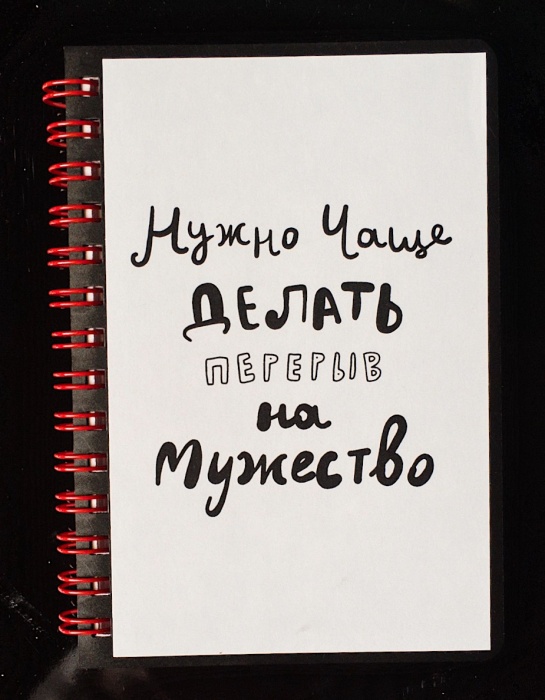 Нужно Чаще
ДЕЛАТЬ
ПЕРЕРЫВ
на
Мужество